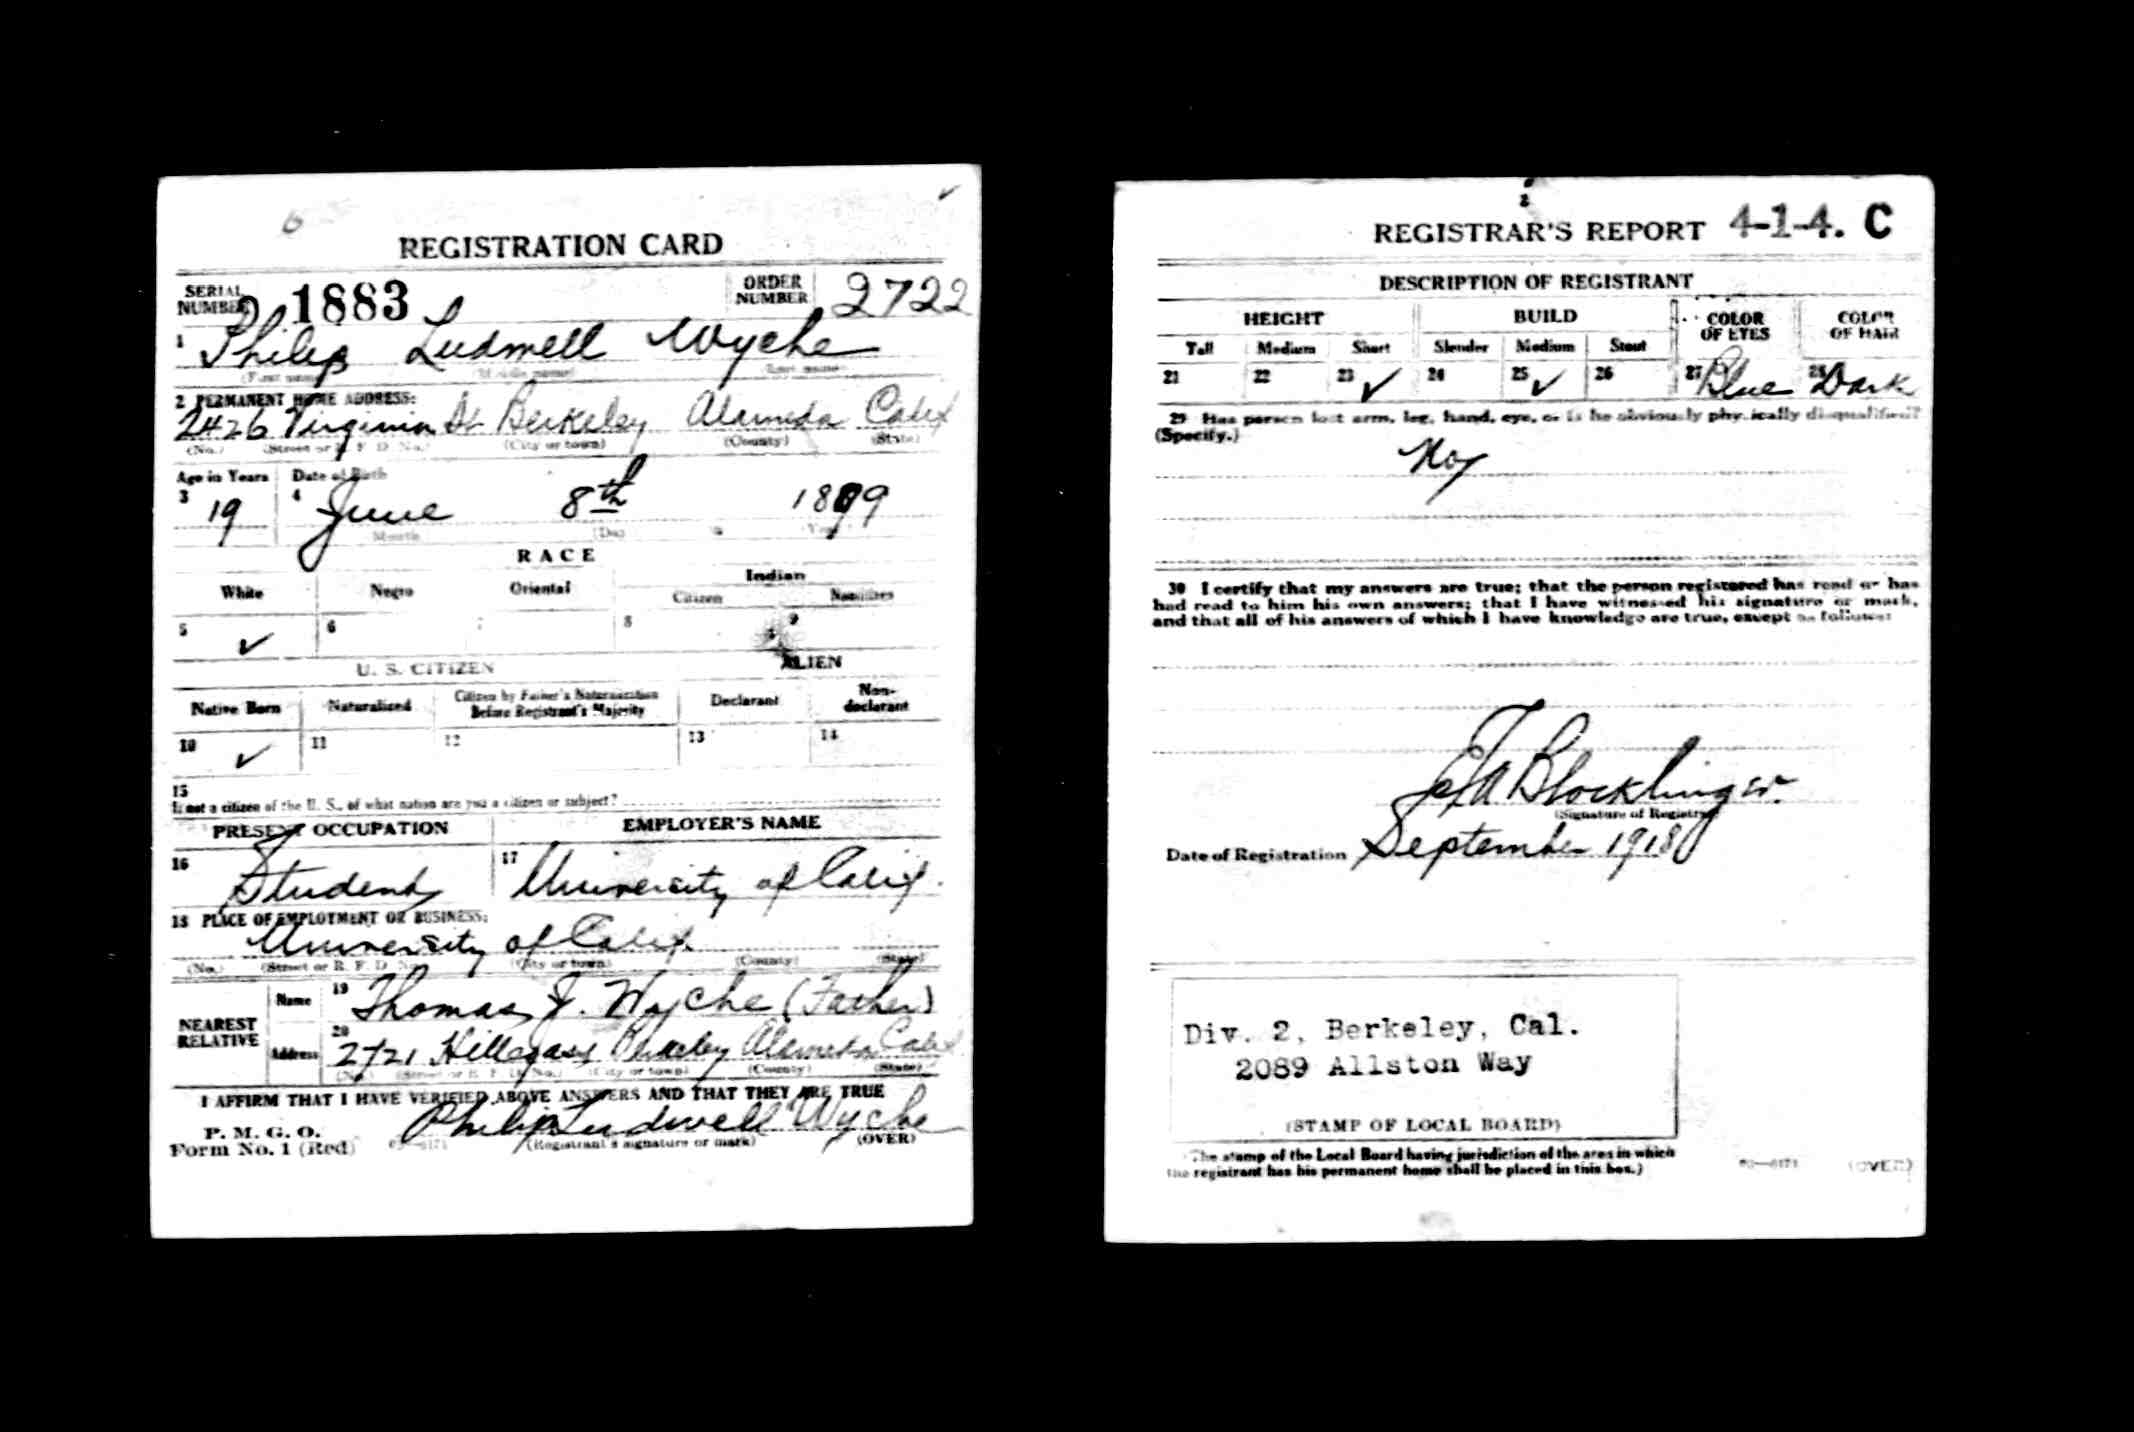 REGISTRATION CARD
SERIAL NUMBER 1883 ORDER NUMBER 2722
1 Philip Ludwell Wyche
(First name) (Middle name) (Last name)
2 PERMANENT HOME ADDRESS:
2426 Virginia St Berkeley Alameda Calif
(No.) (Street or R. F. D. No.) (City or town) (County) (State)
Age in Years Date of Birth
3 19 4 June 8th 1899
Month (Day) Year
RACE
White Negro Oriental Indian
Citizen Noncitizen
5 ✓ 6 7 8 9
U. S. CITIZEN ALIEN
Native Born Naturalized Citizen by Father's Naturalization Before Registrant's Majority Declarant Non-declarant
10 ✓ 11 12 13 14
15
If not a citizen of the U. S., of what nation are you a citizen or subject?
PRESENT OCCUPATION EMPLOYER'S NAME
16 Student 17 University of Calif.
18 PLACE OF EMPLOYMENT OR BUSINESS:
University of Calif.
(No.) (Street or R. F. D. No.) (City or town) (County) (State)
NEAREST RELATIVE
Name 19 Thomas J. Wyche (Father)
Address 20 2721 Hillegass Berkeley Alameda Calif
(No.) (Street or R. F. D. No.) (City or town) (County) (State)
I AFFIRM THAT I HAVE VERIFIED ABOVE ANSWERS AND THAT THEY ARE TRUE
P. M. G. O.
Form No. 1 (Red) Philip Ludwell Wyche
(Registrant's signature or mark) (OVER)
REGISTRAR'S REPORT 4-1-4. C
DESCRIPTION OF REGISTRANT
HEIGHT BUILD COLOR OF EYES COLOR OF HAIR
Tall Medium Short Slender Medium Stout
21 22 23 ✓ 24 25 ✓ 26 27 Blue 28 Dark
29 Has person lost arm, leg, hand, eye, or is he obviously physically disqualified?
(Specify.)
No
30 I certify that my answers are true; that the person registered has read or has
had read to him his own answers; that I have witnessed his signature or mark,
and that all of his answers of which I have knowledge are true, except as follows:
Blocklinger
(Signature of Registrar)
Date of Registration September 1918
Div. 2, Berkeley, Cal.
2089 Allston Way
(STAMP OF LOCAL BOARD)
(The stamp of the Local Board having jurisdiction of the area in which
the registrant has his permanent home shall be placed in this box.)
(OVER)